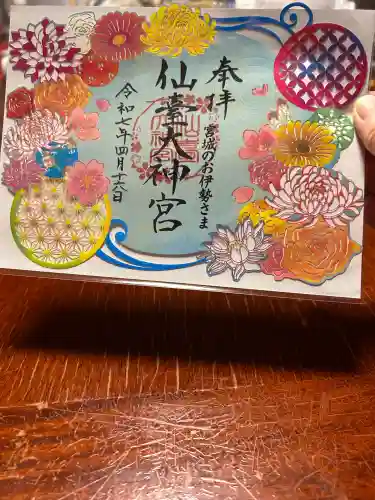 奉拝
宮城のお伊勢さま
仙臺大神宮
令和七年四月十六日